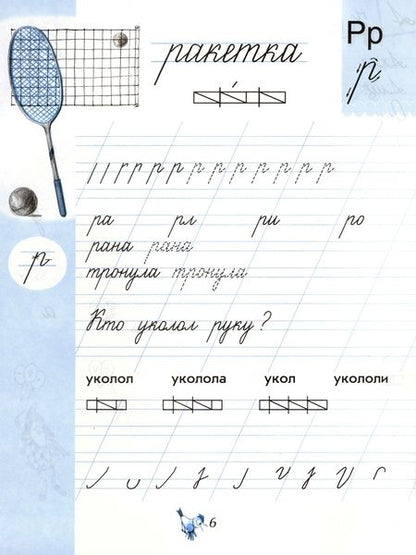 ракетка
Рр
р
р
р р р р р р р р р р
ра рл ри ро
рана рана
тронула тронула
Кто уколол руку?
уколол укололa укол укололи
6